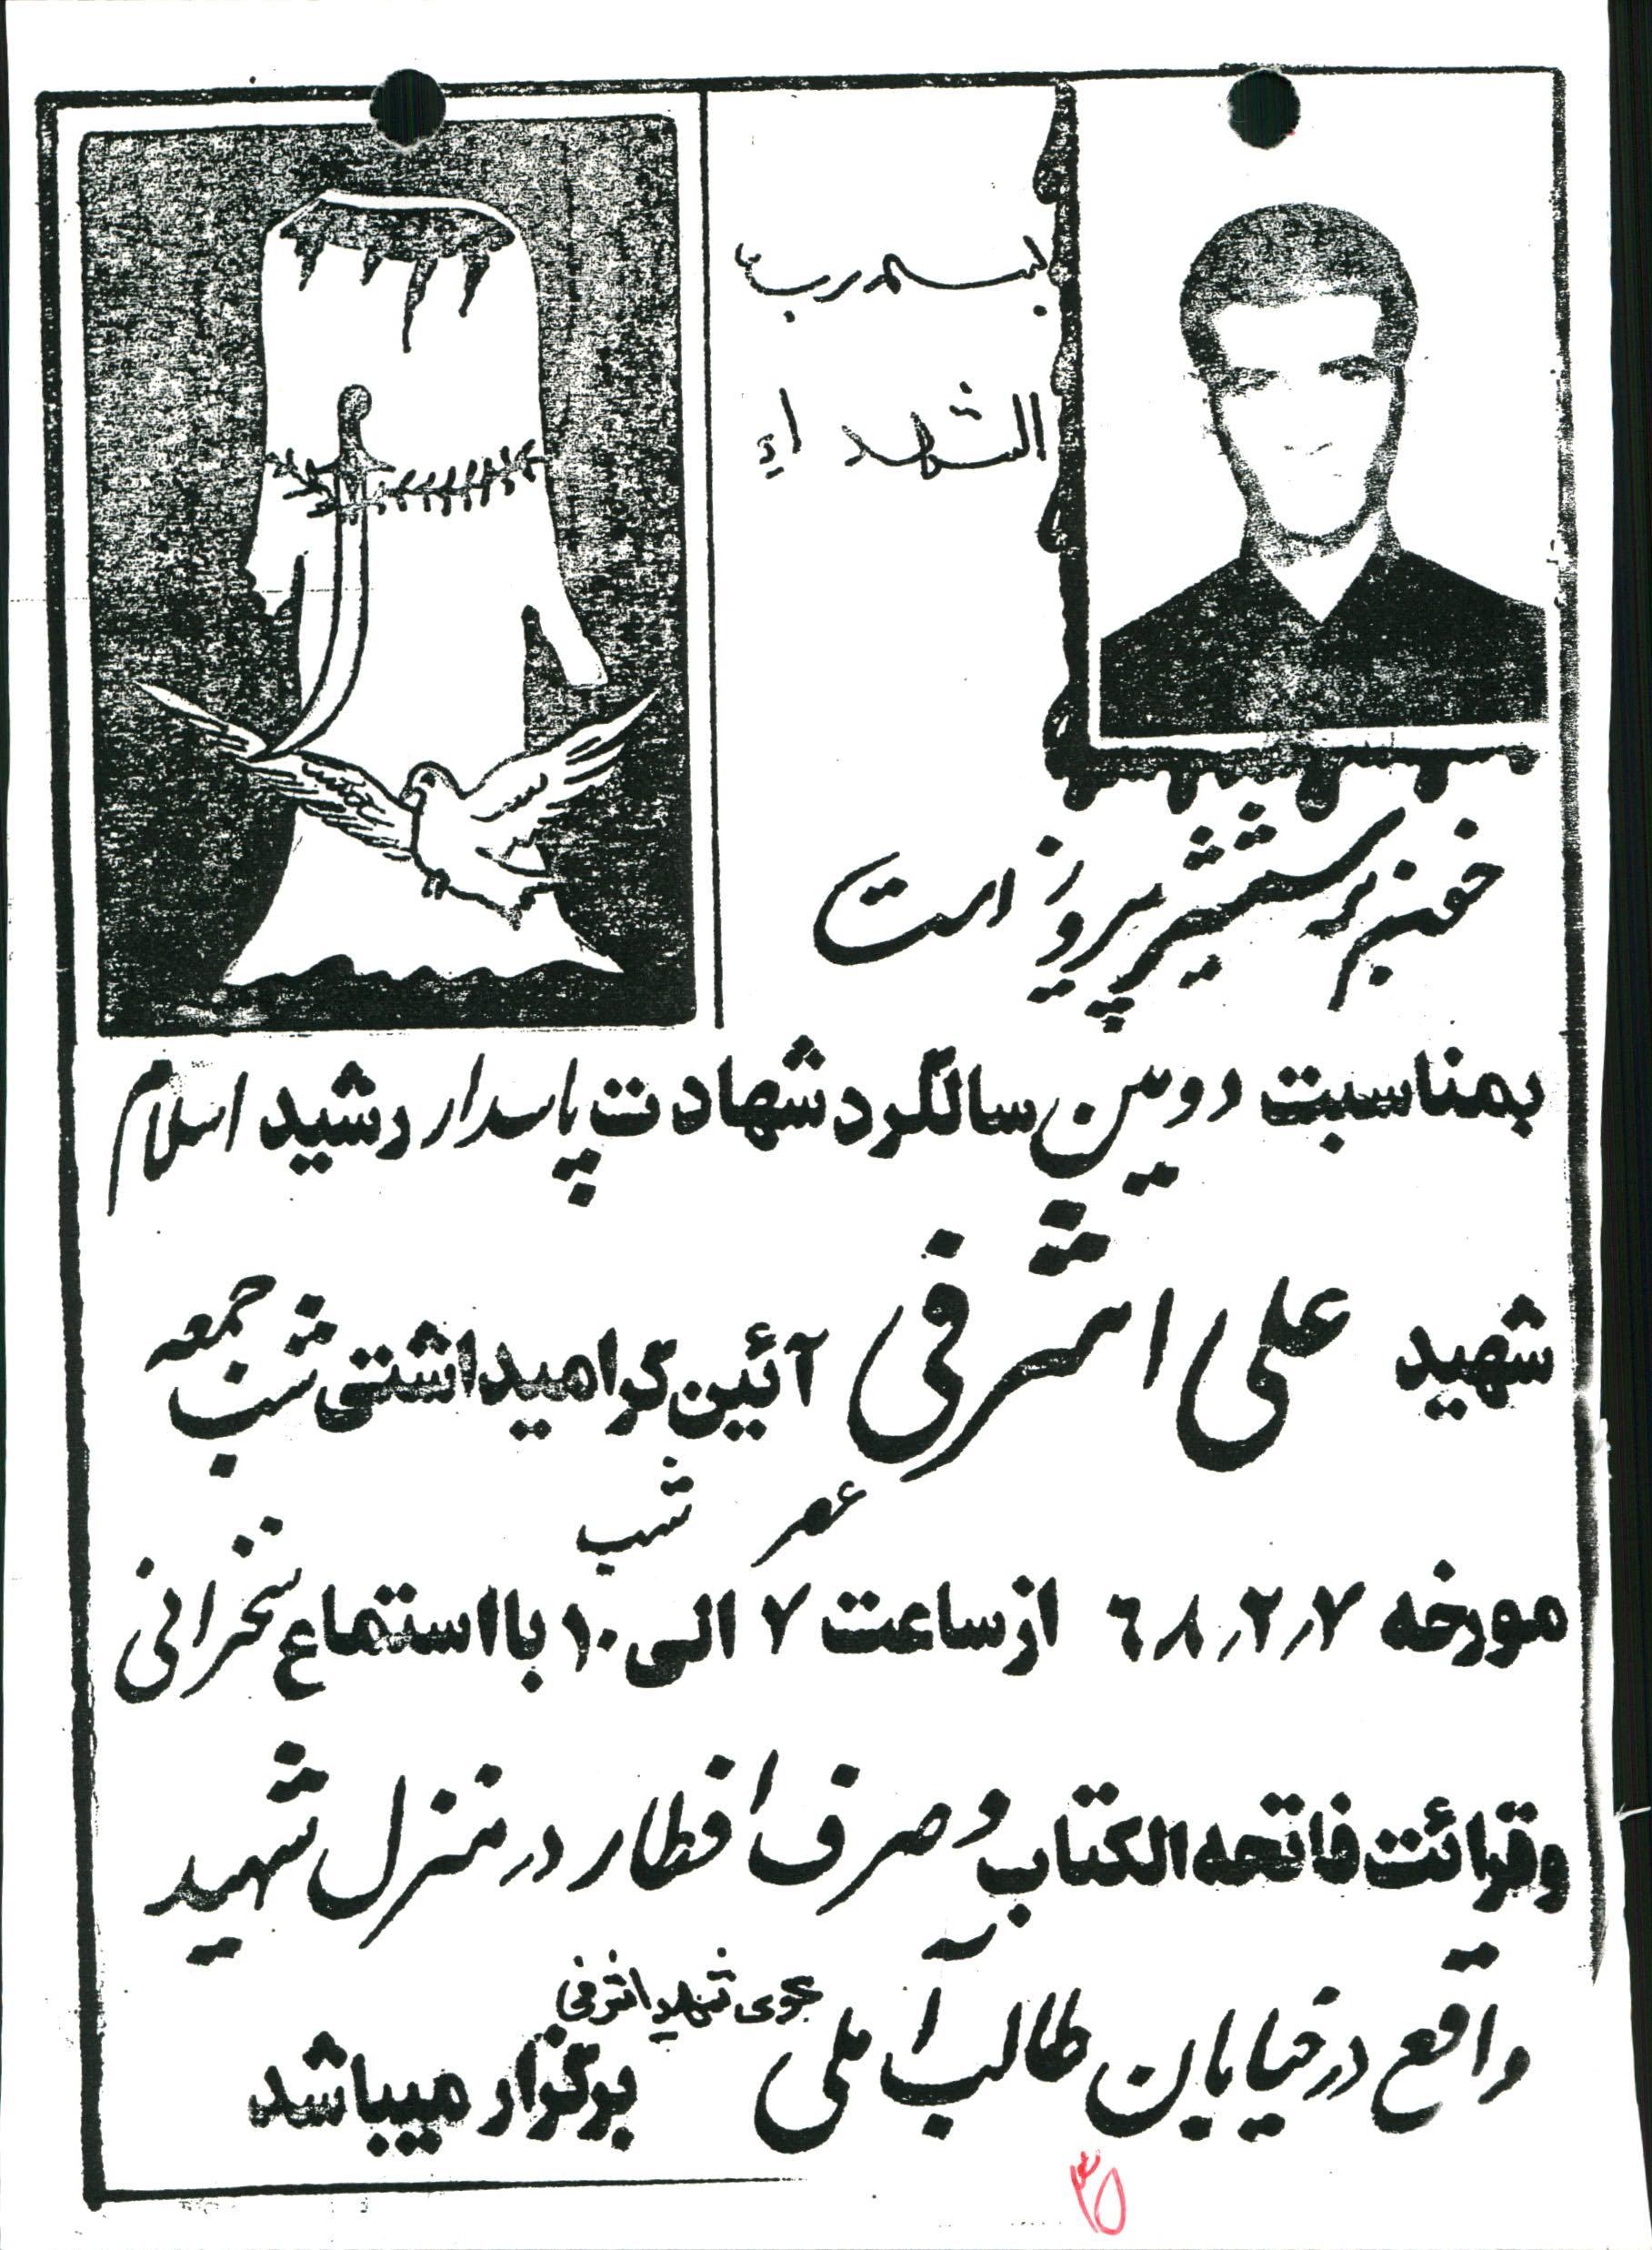 بسمه رب
الشهداء
خون بر شمشیر پیروز است
بمناسبت دومین سالگرد شهادت پاسدار رشید اسلام
شهید علی اشرفی آئین گرامیداشتی شب جمعه
عصر شب
مورخه ۶۸٫۲٫۷ از ساعت ۷ الی ۱۰ با استماع سخنرانی
و قرائت فاتحه الکتاب و صرف افطار در منزل شهید
واقع در خیابان طالب آملی کوی شهید اشرفی برگزار میباشد